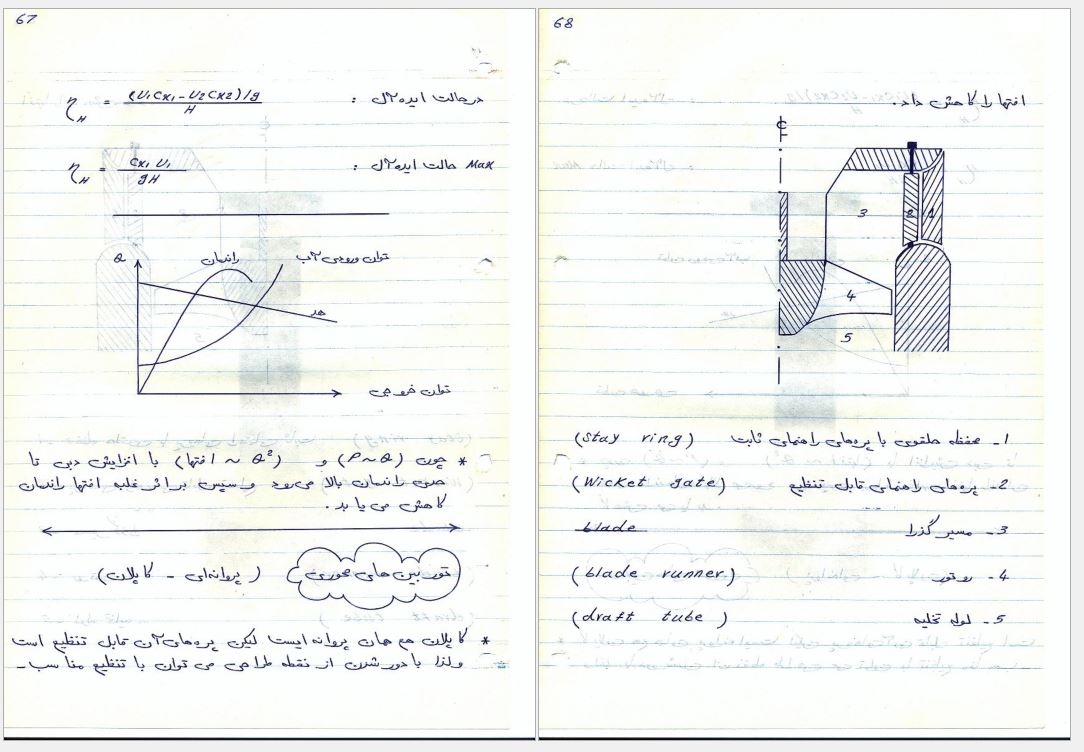 67
درحالت ایده آل : η_H = (U₁Cx₁ - U₂Cx₂)/g / H
Max حالت ایده آل : η_H = Cx₁ U₁ / gH
Q
راندمان
توان ورودی آب
هد
توان خروجی
* چون (P~Q) و (افتها ~ Q²) با افزایش دبی تا
حدی راندمان بالا می‌رود و سپس بر اثر غلبه افتها راندمان
کاهش می یابد .
توربین های محوری (پروانه‌ای - کاپلان)
* کاپلان هم همان پروانه ایست لیکن پره‌های آن قابل تنظیم است
ولذا با دور شدن از نقطه طراحی می توان با تنظیم مناسب -
68
افتها را کاهش داد .
C
1
2
3
4
5
1- محفظه حلقوی با پره‌های راهنمای ثابت (stay ring)
2- پره‌های راهنمای قابل تنظیم (Wicket gate)
3- مسیر گذرا blade
4- روتور (blade runner)
5- لوله تخلیه (draft tube)